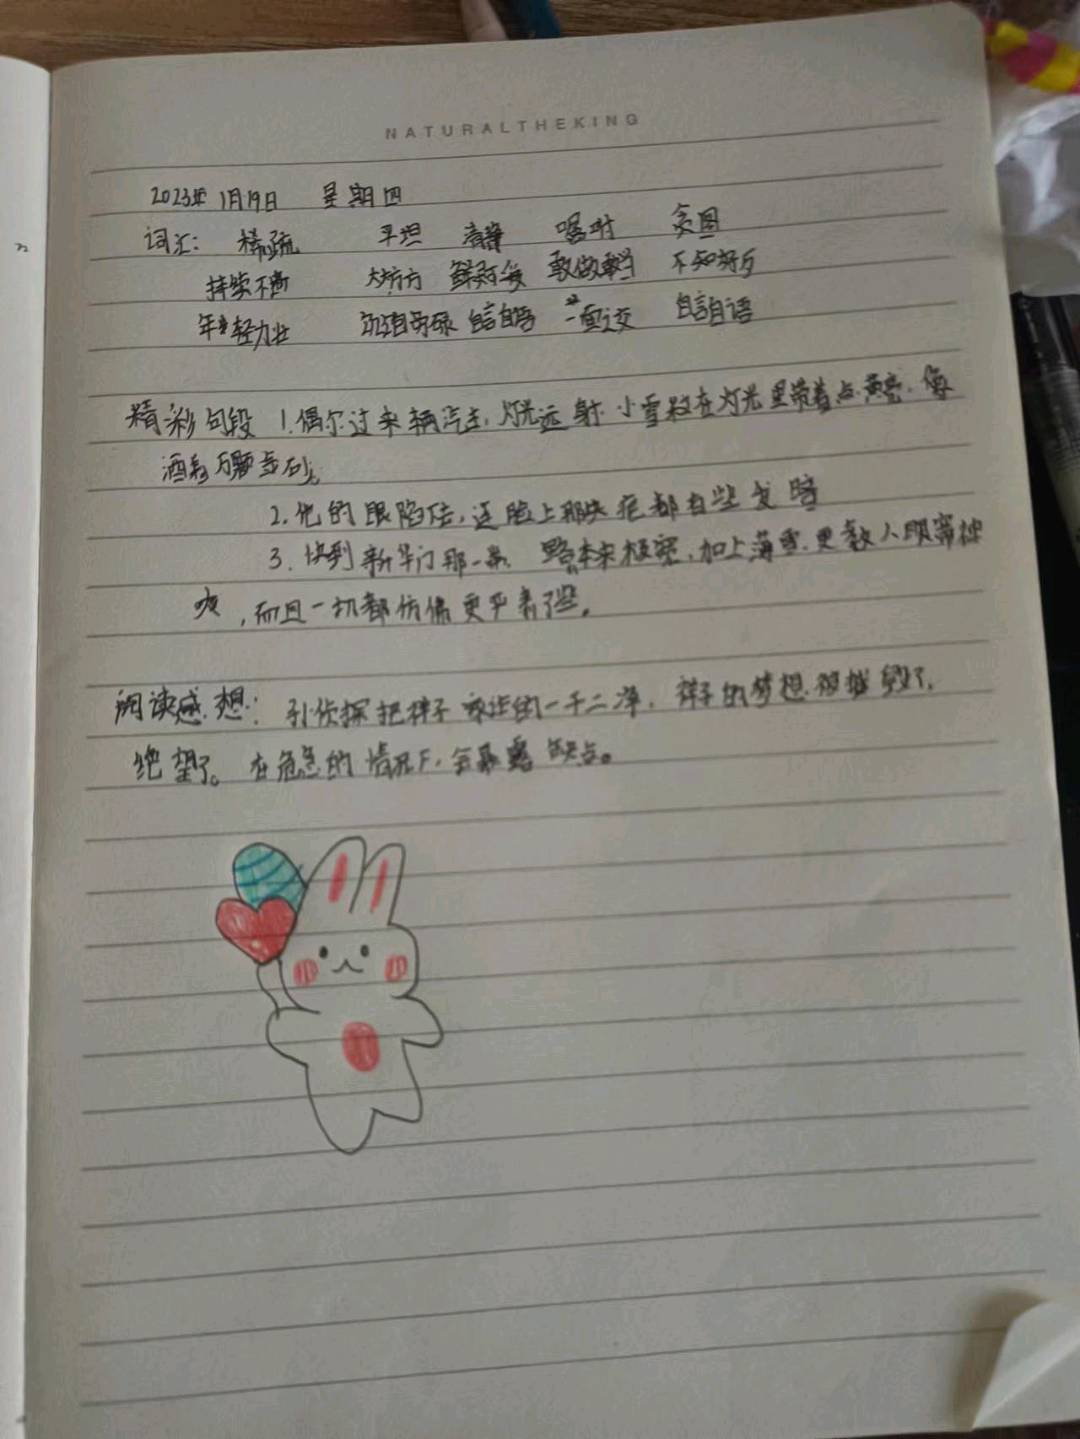 NATURALTHEKING
2023年1月19日 星期四
词汇: 稀疏 平坦 清静 嘱咐 贪图
持续不断 大大方方 敢做敢当 不知好歹
年轻力壮 自言自语
精彩句段 1.偶尔过来辆汽车,灯光远射,小雪粒在灯光里带着点黄亮,像
洒着万颗金砂。
2.他的眼陷进去,连脸上那块疤都有些发暗
3.快到新华门那一带,路本来极宽,加上薄雪,更教人眼宽神
爽,而且一切都仿佛更严肃了些。
阅读感想: 孙侦探把祥子 的一干二净,祥子的梦想 毁了,
绝望了。在危急的情况下,会暴露缺点。